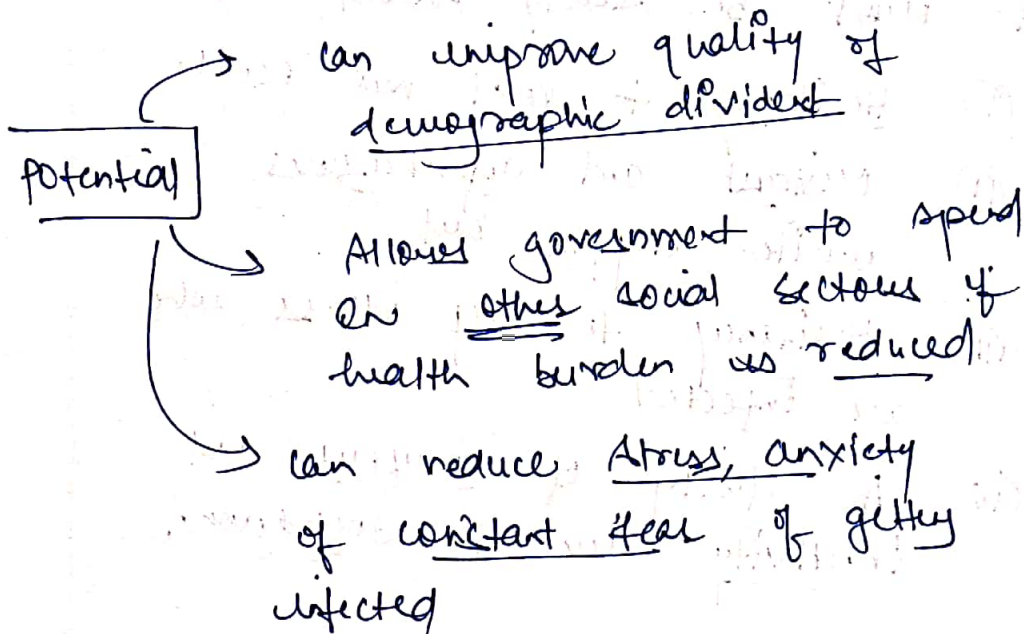 can improve quality of
demographic divident
Potential
Allows government to spend
on other social sectors if
health burden is reduced.
can reduce stress, anxiety
of constant fear of getting
infected